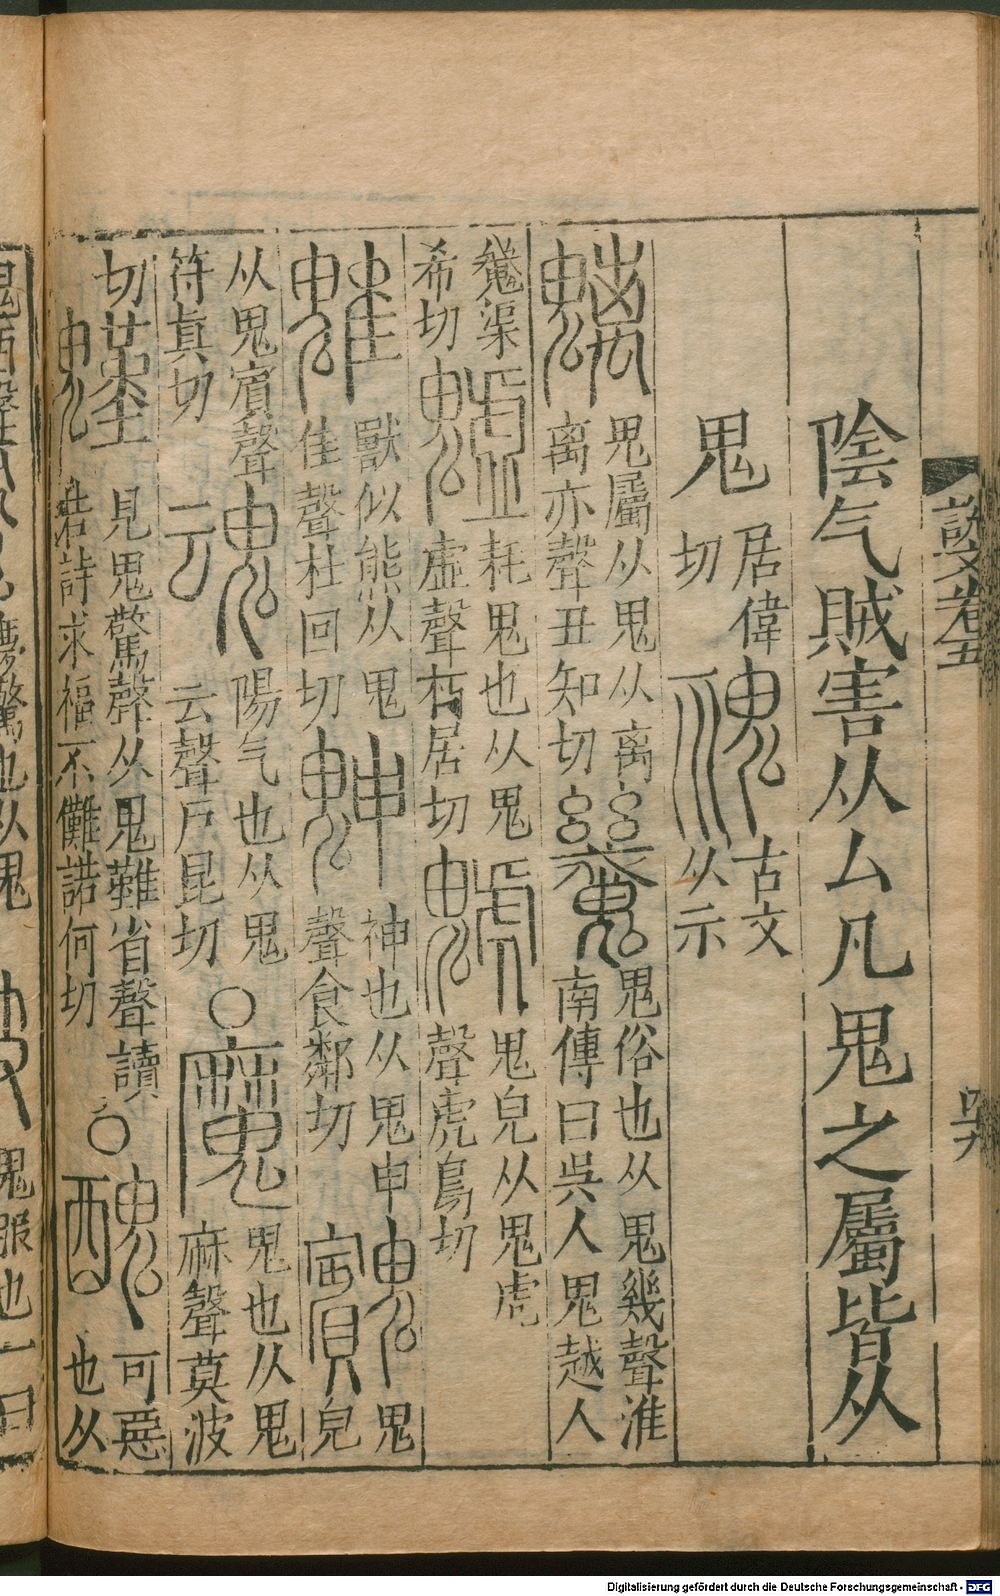 說文卷五
陰气賊害从厶凡鬼之屬皆从
鬼 居偉切 古文从示
鬼屬从鬼从离离亦聲丑知切 鬼俗也从鬼幾聲淮南傳曰吳人鬼越人
鬾渠希切 耗鬼也从鬼虛聲朽居切 鬼皃从鬼虎聲虎烏切
獸似熊从鬼隹聲杜回切 神也从鬼申聲食鄰切 鬼皃
从鬼賓聲符真切 陽气也从鬼云聲戶昆切 ○ 鬼也从鬼麻聲莫波
切 見鬼驚聲从鬼難省聲讀若詩求福不儺諾何切 ○ 可惡也从
鬼服也一曰
Digitalisierung gefördert durch die Deutsche Forschungsgemeinschaft - DFG